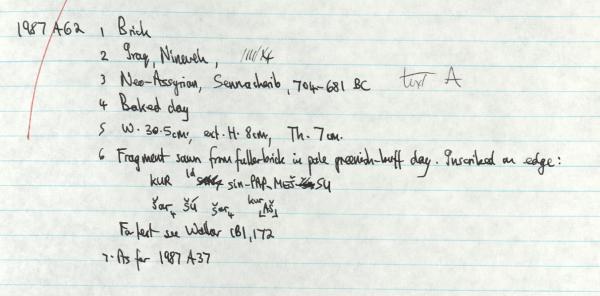 1987 A62 1 Brick
2 Iraq, Nineveh,
3 Neo-Assyrian, Sennacherib, 704-681 BC text A
4 Baked clay
5 W. 30.5cm, ext. H. 8cm, Th. 7cm.
6 Fragment sawn from fuller brick in pale greenish-buff clay. Inscribed on edge:
KUR Id sin-PAP-MEŠ-SU
šar₄ ŠÚ šar₄ kur AŠ
For text see Walker CBI, 172
7. As for 1987 A37